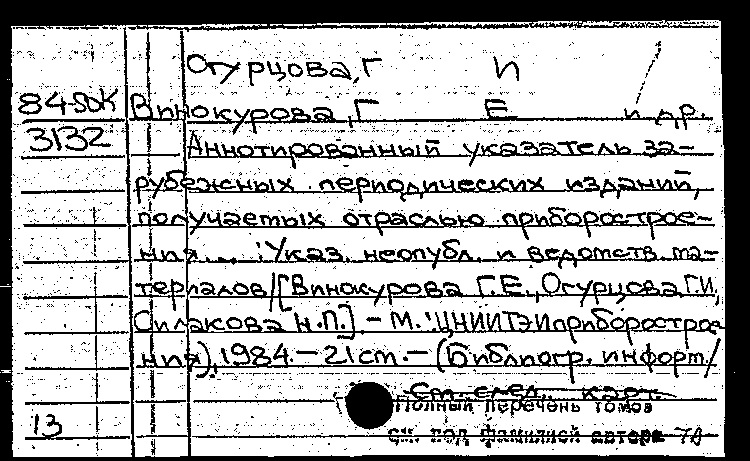 Огурцова, Г И
84-50К Винокурова, Г Е и др.
3132 Аннотированный указатель за-
рубежных периодических изданий,
получаемых отраслью приборострое-
ния... : Указ. неопубл. и ведомств. ма-
териалов/[Винокурова Г.Е., Огурцова Г.И,
Силакова Н.П.] - М. : ЦНИИТЭИприборострое-
ния), 1984. - 21 см. - (Библиогр. информ./
См. след. карт.
Полный перечень томов
13 см. под фамилией автора